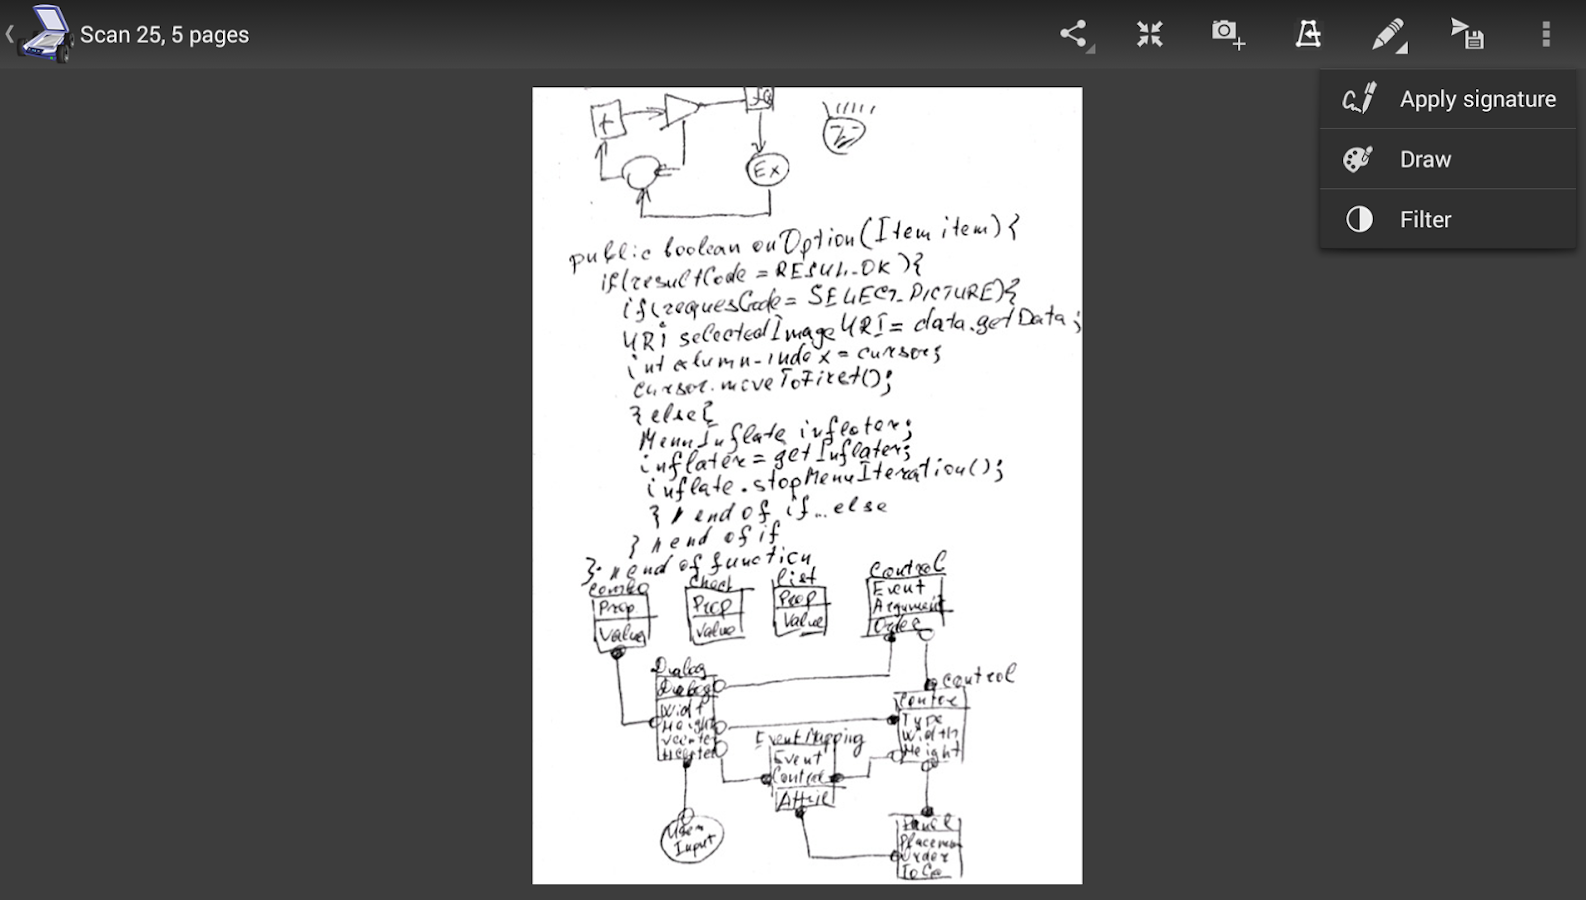 Scan 25, 5 pages
Apply signature
Draw
Filter
+
Ex
public boolean onOption(Item item){
if(resultCode = RESUL_OK){
if(requesCode = SELECT_PICTURE){
URi selectedImageURI = data.getData;
int column-index = cursor;
cursor.moveToFirst();
} else{
MenuInflate inflater;
inflater = getInflater;
inflate.stopMenuIteration();
} // end of if...else
} // end of if
}; // end of function
Combo
Prop
Value
Check
Prop
Value
List
Prop
Value
Control
Event
Argument
Order
Dialog
Dialog
Widt
Height
Vcenter
Hcenter
Control
Type
Width
Height
EventMapping
Event
Control
User
Input
Panel
Order